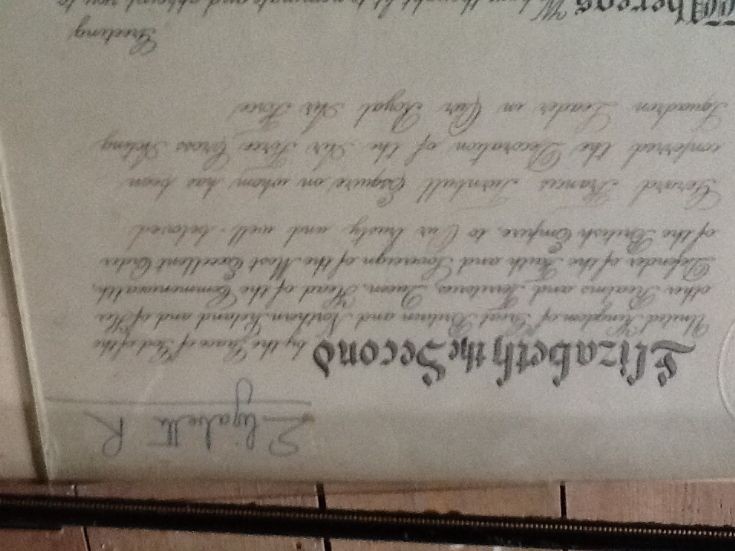 Elizabeth R
Elizabeth the Second by the Grace of God of the
United Kingdom of Great Britain and Northern Ireland and of Her
other Realms and Territories, Queen, Head of the Commonwealth,
Defender of the Faith and Sovereign of the Most Excellent Order
of the British Empire, to Our trusty and well-beloved
Gerard Francis Turnbull Esquire on whom has been
conferred the Decoration of the Air Force Cross Acting
Squadron Leader in Our Royal Air Force
Greeting
Whereas We have thought fit to nominate and appoint you to